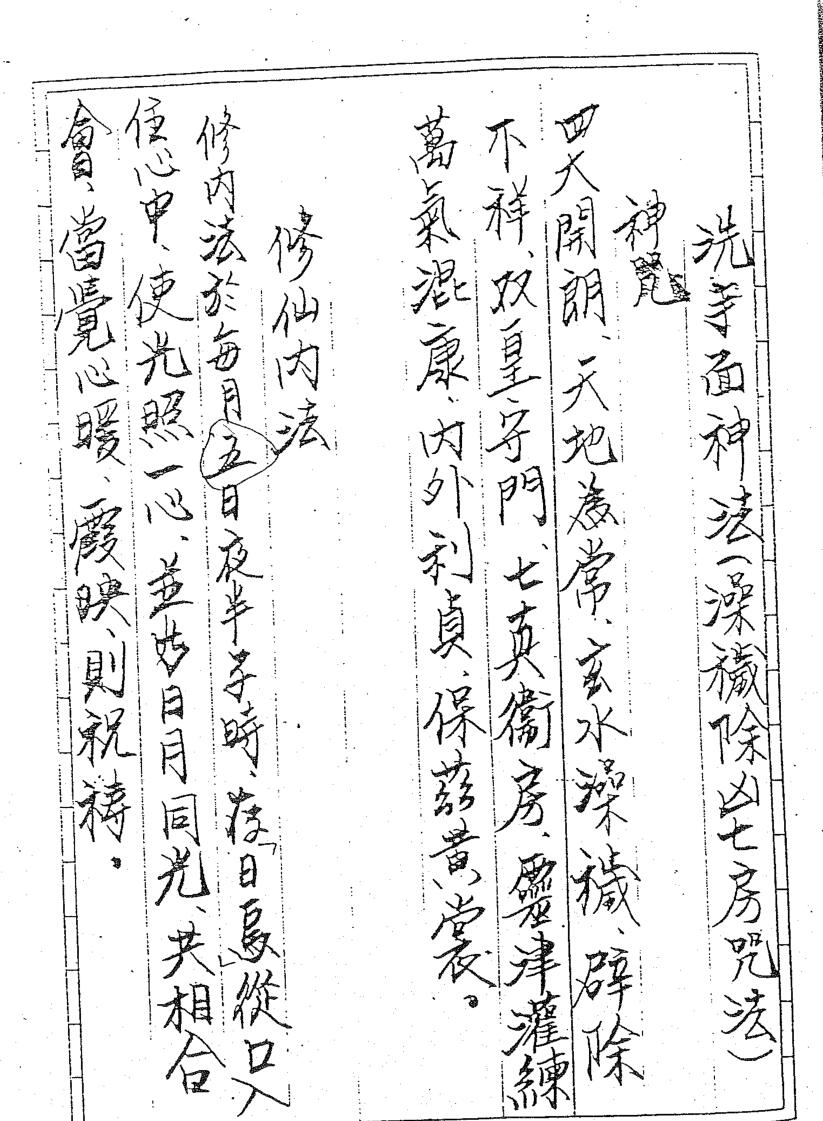 洗手面神法(澡穢除凶七房咒法)
神咒
四大開朗、天地為常、玄水澡穢、辟除
不祥、双皇守門、七真衞房、靈津灌練
萬氣混康、內外利貞、保茲黃裳。
修仙內法
修內法於每月五日夜半子時、存「日烏」從口入
住心中、使光照一心、並與日月同光、共相合
會、當覺心暖、霞映、則祝禱。